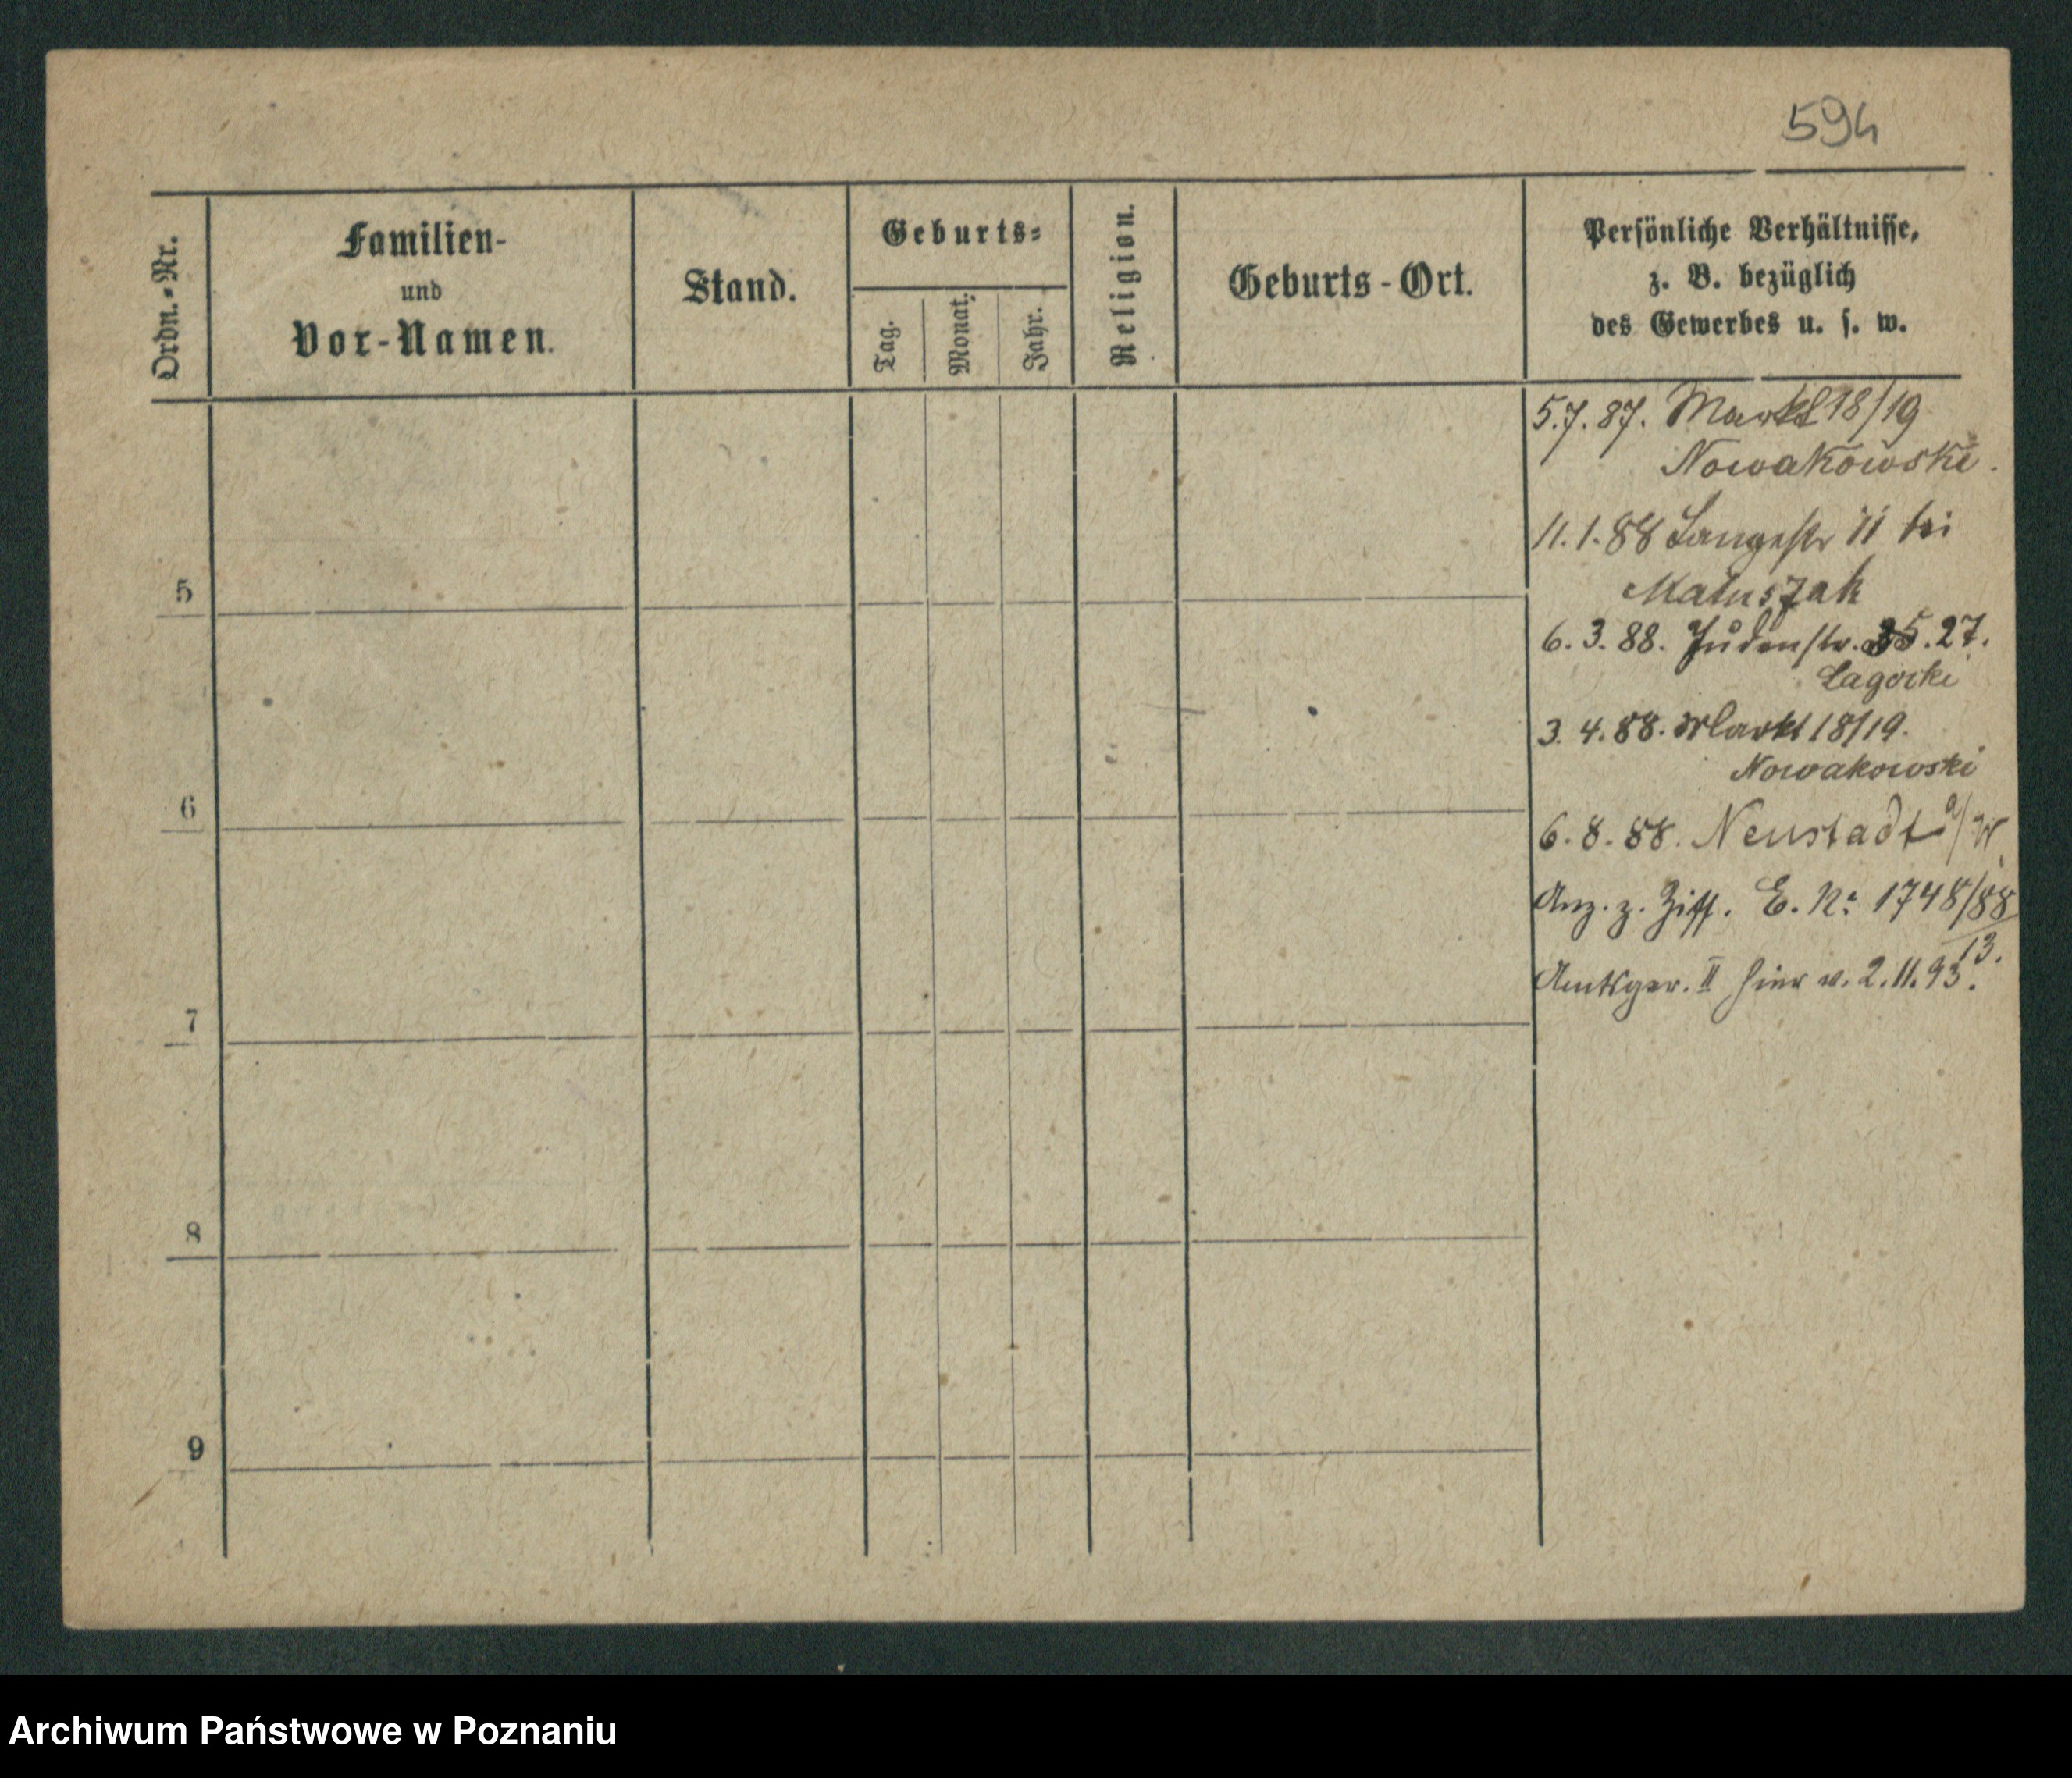 594
Ordn.-Nr.
Familien-
und
Vor-Namen.
Stand.
Geburts-
Tag.
Monat.
Jahr.
Religion.
Geburts-Ort.
Persönliche Verhältnisse,
z. B. bezüglich
des Gewerbes u. s. w.
5.7.87. Markt 18/19
Nowakowski.
11.1.88 Langestr 11 bei
Matuszak
5
6.3.88. Judenstr. 27.
Lagocki
3.4.88. Markt 18/19.
Nowakowski
6
6.8.88. Neustadt a/W.
Anz. z. Ziff. E. No: 1748/88
13.
Amtsger. II hier v. 2.11.93.
7
8
9
Archiwum Państwowe w Poznaniu